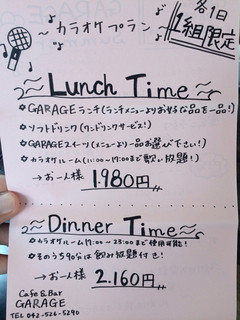 各1日
1組限定
～カラオケプラン
Lunch Time
GARAGEランチ(ランチメニューよりお好きな品を一品!)
ソフトドリンク(ワンドリンクサービス!)
GARAGEスイーツ(メニューより一品お選び下さい!)
カラオケルーム(11:00～17:00まで歌い放題!)
→お一人様 1.980円
Dinner Time
カラオケルーム17:00～23:00まで使用可能!
そのうち90分は飲み放題付き!
→お一人様 2.160円
Cafe&Bar
GARAGE
TEL 042-526-5290